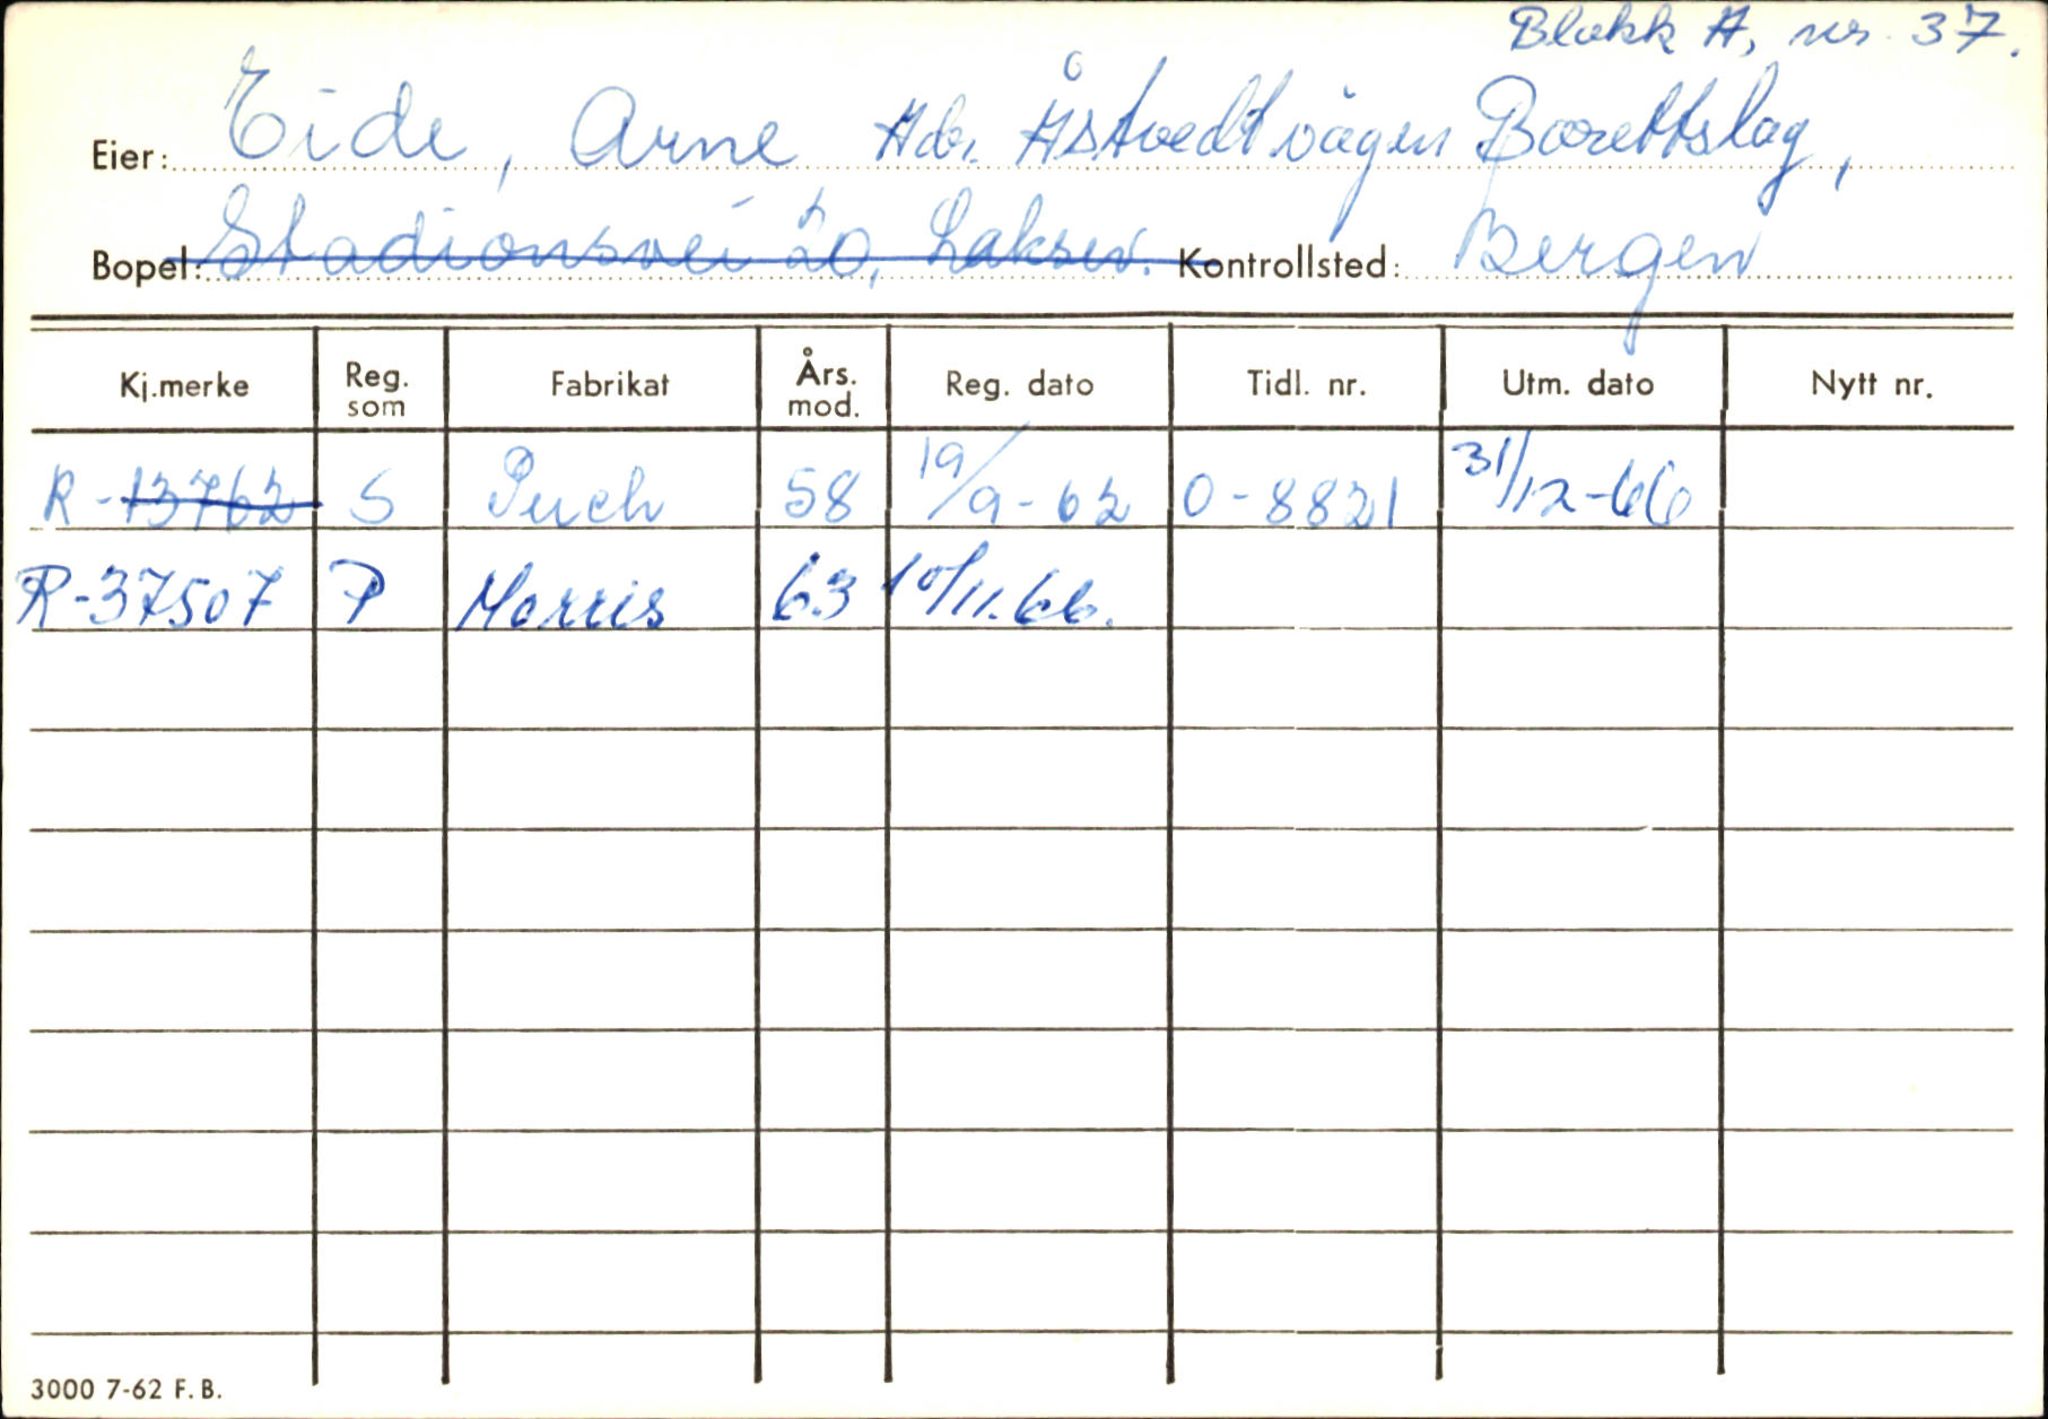 Blokk A, nr. 37.
Eier: Eide, Arne Adr. Åstvedtvågen Borettslag,
Bopel: Stadionsvei 20, Laksev. Kontrollsted: Bergen
Kj.merke Reg. som Fabrikat Års. mod. Reg. dato Tidl. nr. Utm. dato Nytt nr.
R-13762 S Puch 58 19/9-62 O-8821 31/12-66
R-37507 P Morris 63 10/11.66.
3000 7-62 F.B.